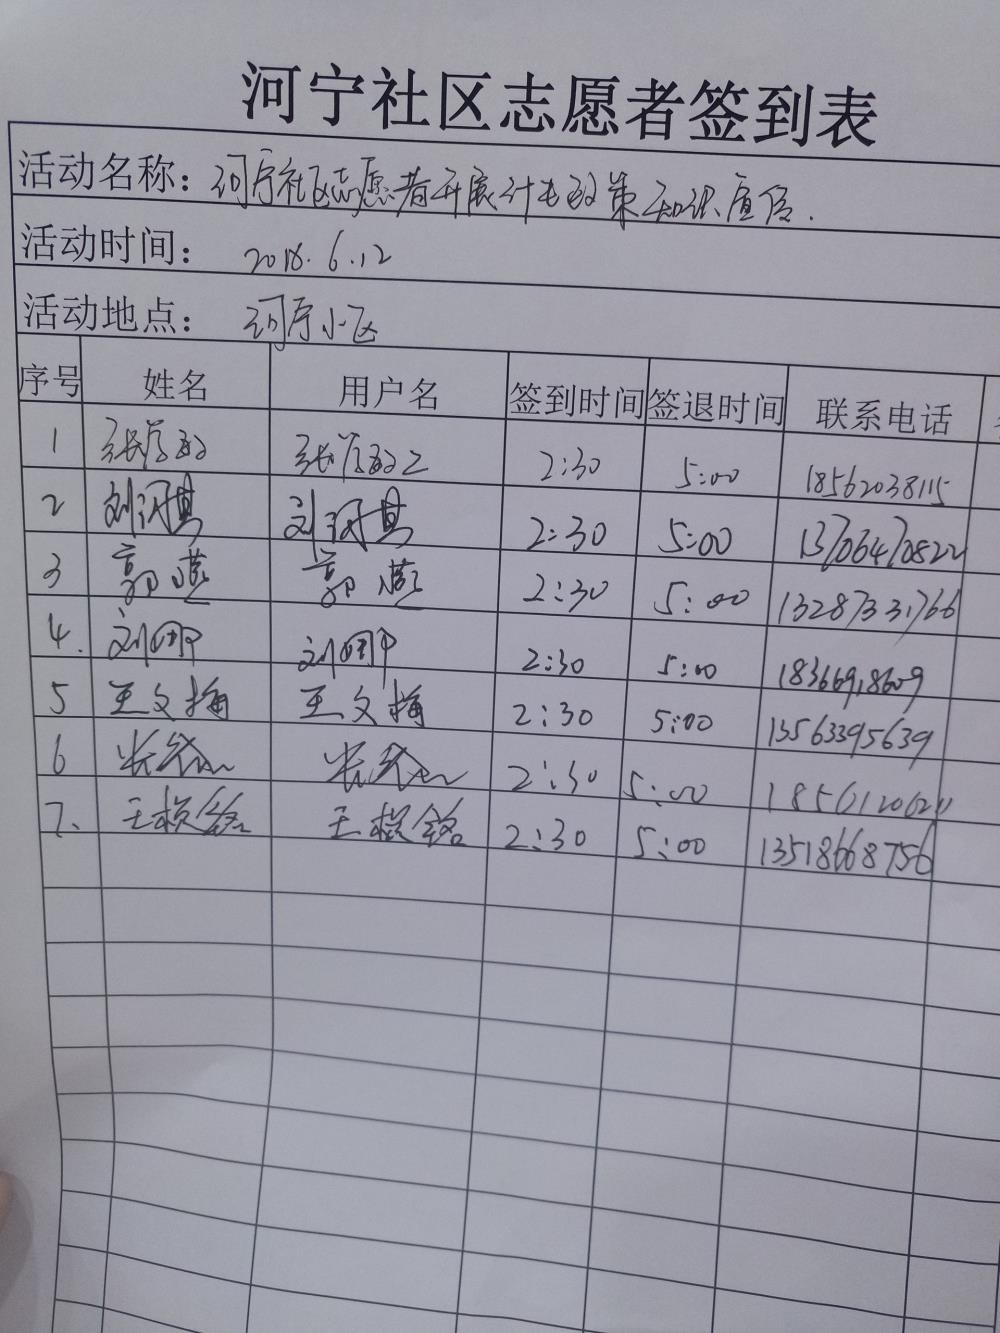 河宁社区志愿者签到表
活动名称：河宁社区志愿者开展计生政策知识宣传.
活动时间：2018.6.12
活动地点：河宁小区
序号 姓名 用户名 签到时间 签退时间 联系电话
1 2:30 5:00 18562038115
2 刘 刘 2:30 5:00 13706470822
3 郭燕 郭燕 2:30 5:00 13287331766
4. 刘娜 刘娜 2:30 5:00 18366918609
5 王文梅 王文梅 2:30 5:00 13563395639
6 2:30 5:00
7. 王 王 2:30 5:00 13518668756